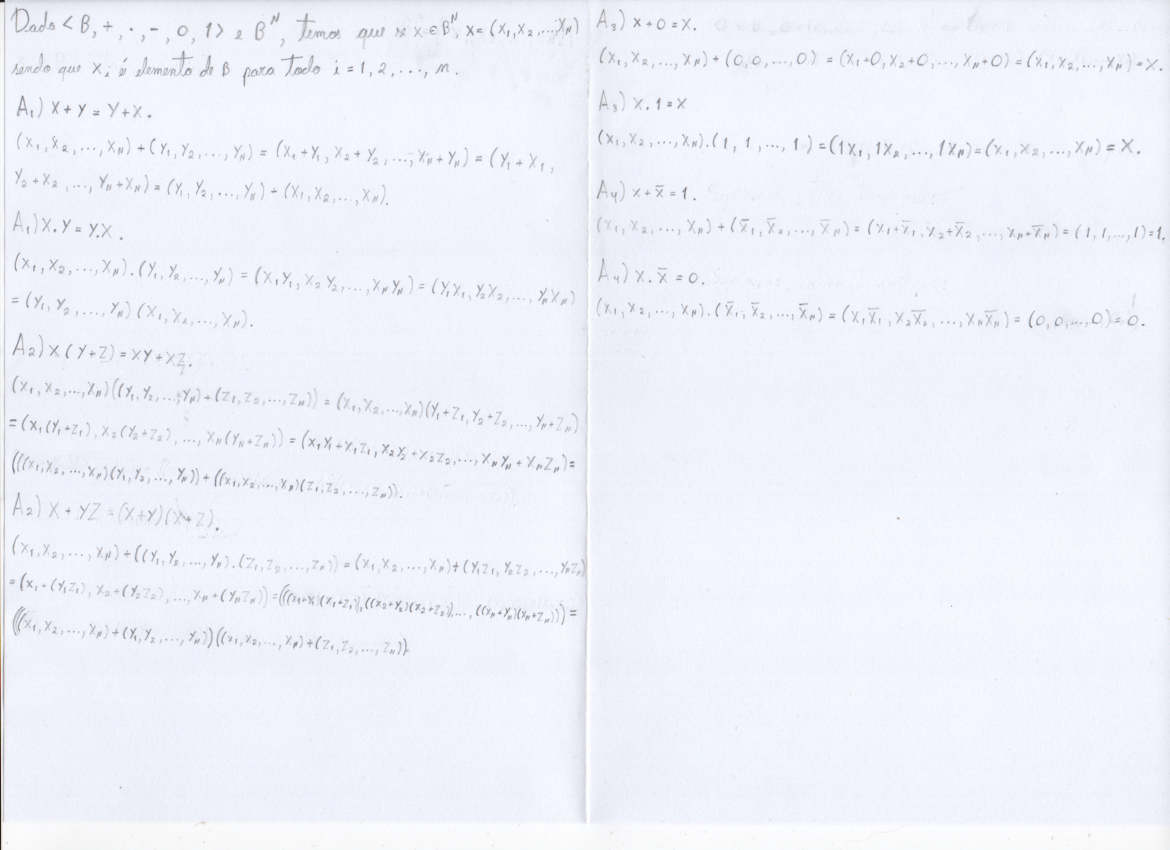 Dado < B, +, ·, -, 0, 1> e Bᴺ, temos que se x ∈ Bᴺ, x = (x₁, x₂, ..., xₙ)
sendo que xᵢ é elemento de B para todo i = 1, 2, ..., n.
A₁) x + y = y + x.
(x₁, x₂, ..., xₙ) + (y₁, y₂, ..., yₙ) = (x₁+y₁, x₂+y₂, ..., xₙ+yₙ) = (y₁+x₁,
y₂+x₂, ..., yₙ+xₙ) = (y₁, y₂, ..., yₙ) + (x₁, x₂, ..., xₙ).
A₁) x.y = y.x.
(x₁, x₂, ..., xₙ).(y₁, y₂, ..., yₙ) = (x₁y₁, x₂y₂, ..., xₙyₙ) = (y₁x₁, y₂x₂, ..., yₙxₙ)
= (y₁, y₂, ..., yₙ)(x₁, x₂, ..., xₙ).
A₂) x(y+z) = xy + xz.
(x₁, x₂, ..., xₙ)((y₁, y₂, ..., yₙ) + (z₁, z₂, ..., zₙ)) = (x₁, x₂, ..., xₙ)(y₁+z₁, y₂+z₂, ..., yₙ+zₙ)
= (x₁(y₁+z₁), x₂(y₂+z₂), ..., xₙ(yₙ+zₙ)) = (x₁y₁+x₁z₁, x₂y₂+x₂z₂, ..., xₙyₙ+xₙzₙ) =
(((x₁, x₂, ..., xₙ)(y₁, y₂, ..., yₙ)) + ((x₁, x₂, ..., xₙ)(z₁, z₂, ..., zₙ)).
A₂) x + yz = (x+y)(x+z).
(x₁, x₂, ..., xₙ) + ((y₁, y₂, ..., yₙ).(z₁, z₂, ..., zₙ)) = (x₁, x₂, ..., xₙ) + (y₁z₁, y₂z₂, ..., yₙzₙ)
= (x₁+(y₁z₁), x₂+(y₂z₂), ..., xₙ+(yₙzₙ)) = (((x₁+y₁)(x₁+z₁)), ((x₂+y₂)(x₂+z₂)), ..., ((xₙ+yₙ)(xₙ+zₙ))) =
(((x₁, x₂, ..., xₙ) + (y₁, y₂, ..., yₙ))((x₁, x₂, ..., xₙ) + (z₁, z₂, ..., zₙ)).
A₃) x + 0 = x.
(x₁, x₂, ..., xₙ) + (0, 0, ..., 0) = (x₁+0, x₂+0, ..., xₙ+0) = (x₁, x₂, ..., xₙ) = x.
A₃) x.1 = x
(x₁, x₂, ..., xₙ).(1, 1, ..., 1) = (1x₁, 1x₂, ..., 1xₙ) = (x₁, x₂, ..., xₙ) = x.
A₄) x + x̅ = 1.
(x₁, x₂, ..., xₙ) + (x̅₁, x̅₂, ..., x̅ₙ) = (x₁+x̅₁, x₂+x̅₂, ..., xₙ+x̅ₙ) = (1, 1, ..., 1) = 1.
A₄) x.x̅ = 0.
(x₁, x₂, ..., xₙ).(x̅₁, x̅₂, ..., x̅ₙ) = (x₁x̅₁, x₂x̅₂, ..., xₙx̅ₙ) = (0, 0, ..., 0) = 0.